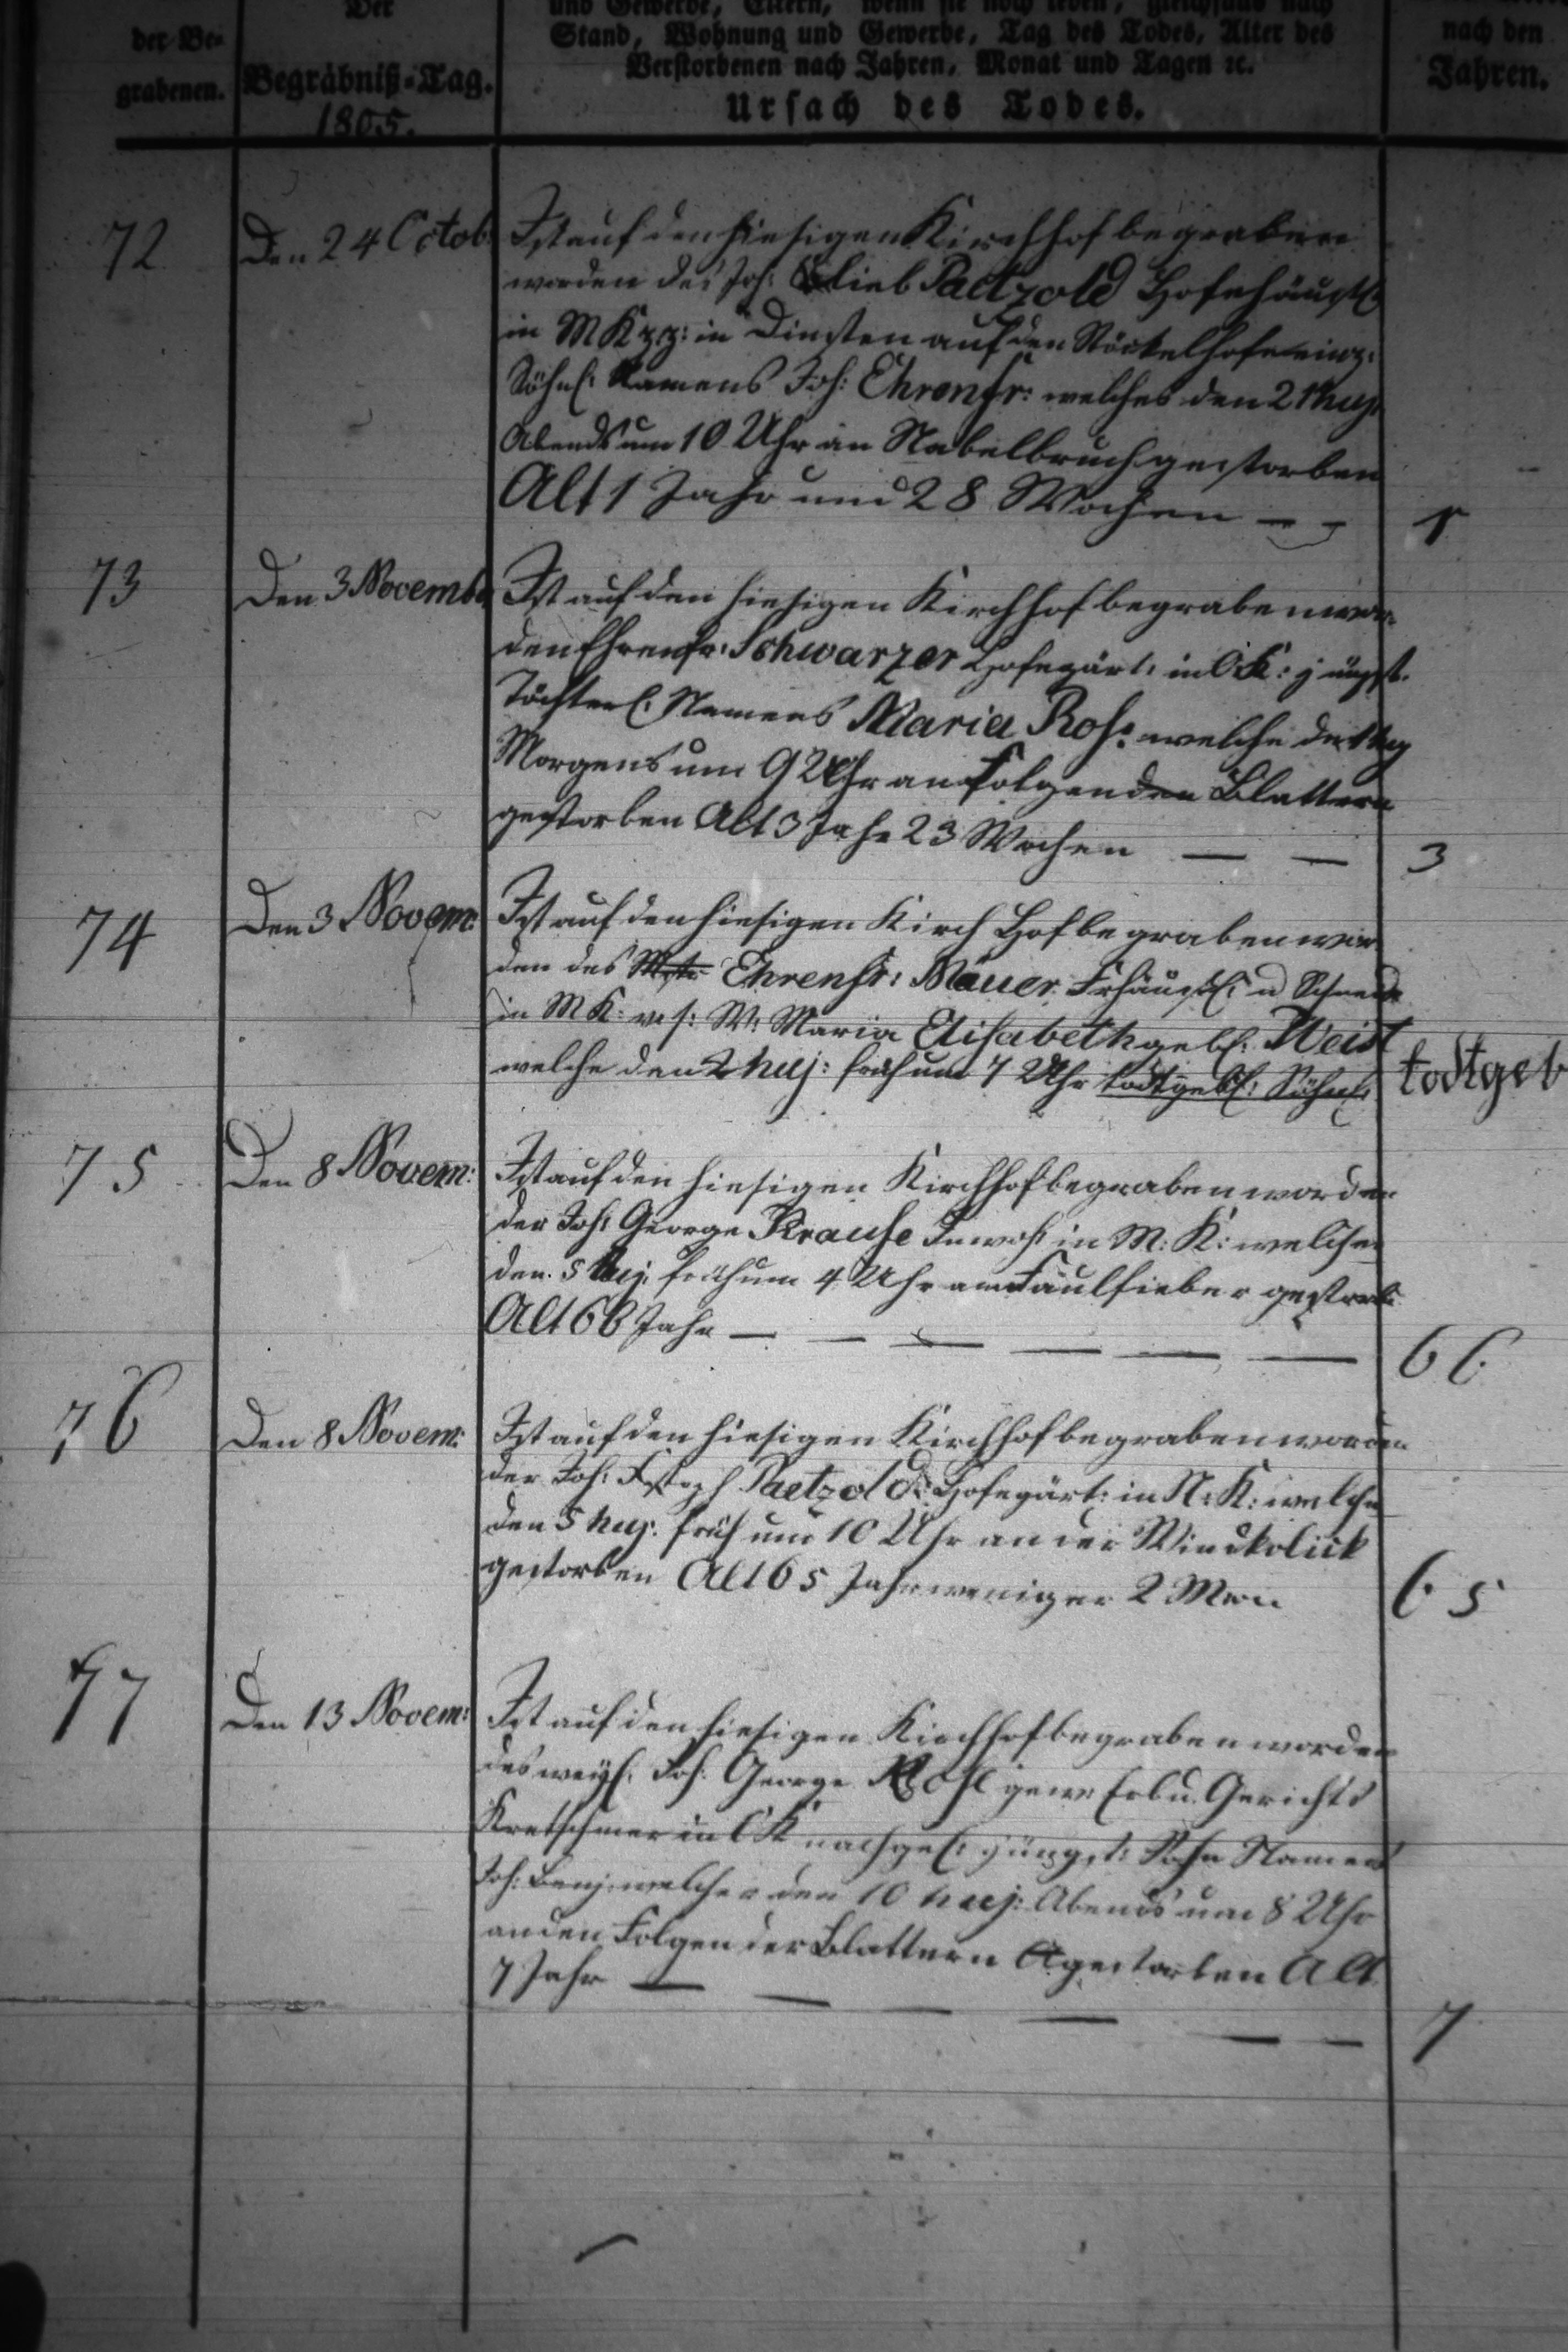 der Be-
grabenen.
Der
Begräbniß-Tag.
1805.
und Gewerbe, Eltern, wenn sie noch leben, gleichfalls nach
Stand, Wohnung und Gewerbe, Tag des Todes, Alter des
Verstorbenen nach Jahren, Monat und Tagen ꝛc.
Ursach des Todes.
nach den
Jahren.
72
Den 24 Octob:
Ist auf den hiesigen Kirchhof begraben
worden des Joh: Glieb Paetzold Hofehäusl:
in MK zz: in Diensten auf den Stöckelhofe einz:
Söhnl: Namens Joh: Ehrenfr: welches den 21 huj:
Abends um 10 Uhr an Nabelbruch gestorben
Alt 1 Jahr und 28 Wochen — —
1
73
Den 3 Novemb:
Ist auf den hiesigen Kirchhof begraben wor-
den Ehrenfr: Schwarzer Hofegärt: in OK: jüngst.
Töchterl: Namens Maria Ros: welche den 1 huj
Morgens um 9 Uhr an folgenden Blattern
gestorben Alt 3 Jahr 23 Wochen — —
3
74
Den 3 Novem:
Ist auf den hiesigen Kirch Hof begraben wor
den des Mstr Ehrenfr: Mäuer Frhäusl: u Schneid
in MK: Maria Elisabeth geb: Weist
welche den 2 huj: früh um 7 Uhr todtgeb: Söhnl:
todtgeb
75
Den 8 Novem:
Ist auf den hiesigen Kirchhof begraben worden
der Joh: George Krause Inwoh: in M: K: welcher
den 5 huj. früh um 4 Uhr am Faulfieber gestorb:
Alt 66 Jahr — — — — — —
66
76
Den 8 Novem:
Ist auf den hiesigen Kirchhof begraben worden
der Joh: Paetzold: Hofegärt: in N: K: welcher
den 5 huj: früh um 10 Uhr an der Windkolick
gestorben Alt 65 Jahr weniger 2 Mon
65
77
Den 13 Novem:
Ist auf den hiesigen Kirchhof begraben worden
des weyl: Joh: George gew: Erb u. Gerichts
Kretschmer in OK nachgel: jüngst: Sohn Namens
Joh: Benj: welcher den 10 huj: Abends um 8 Uhr
an den Folgen der Blattern gestorben Alt
7 Jahr — — — — — —
7